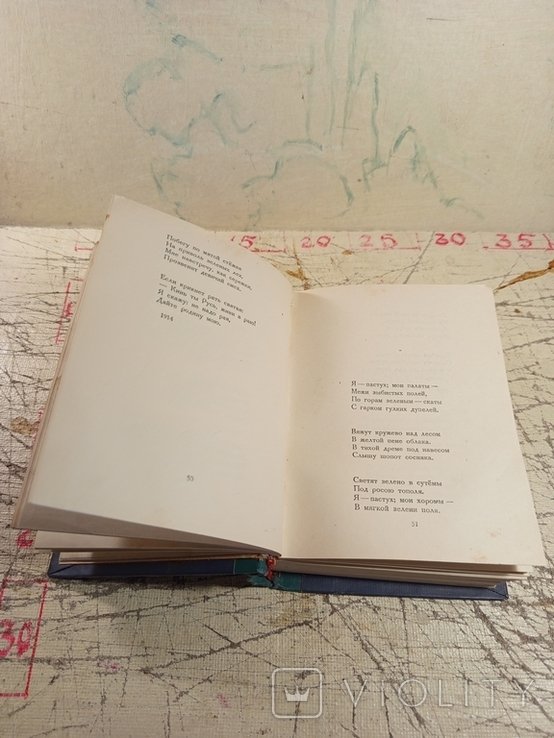 5 20 25 30 35
Побегу по мятой стёжке
На приволь зеленых лех,
Мне навстречу, как сережки,
Прозвенит девичий смех.
Если крикнет рать святая:
— Кинь ты Русь, живи в раю!
Я скажу: не надо рая,
Дайте родину мою.
1914
50
Я — пастух; мои палаты —
Межи зыбистых полей,
По горам зеленым — скаты
С гарком гулких дупелей.
Вяжут кружево над лесом
В желтой пене облака.
В тихой дреме под навесом
Слышу шопот сосняка.
Светят зелено в сутёмы
Под росою тополя.
Я — пастух; мои хоромы —
В мягкой зелени поля.
51
30
VIOLITY